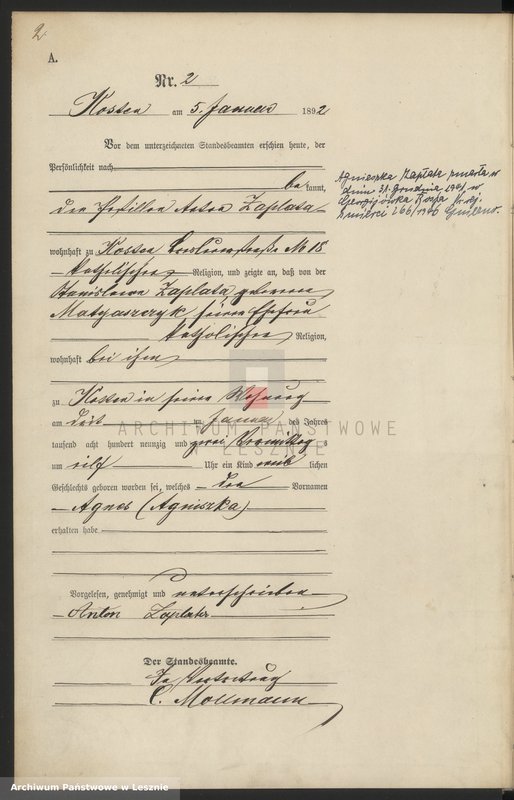 2
A.
Nr. 2
Kosten am 5. Januar 1892
Vor dem unterzeichneten Standesbeamten erschien heute, der
Persönlichkeit nach
bekannt,
Anton Zaplata
Agnieszka Zapłata zmarła w
dniu 31. Grudnia w
śmierci
wohnhaft zu Kosten No 18
katholischer Religion, und zeigte an, daß von der
Stanislawa Zaplata geborenen
Matyaszczyk, seiner Ehefrau
katholischer Religion,
wohnhaft bei ihm
zu Kosten in seiner Wohnung
am des Jahres
tausend acht hundert neunzig und zwei Vormittags
um elf Uhr ein Kind weiblichen
Geschlechts geboren worden sei, welches den Vornamen
Agnes (Agniszka)
erhalten habe
Vorgelesen, genehmigt und unterschrieben
Anton Zaplata
Der Standesbeamte.
In Vertretung
C. Mollmann
ARCHIWUM PAŃSTWOWE
W LESZNIE
Archiwum Państwowe w Lesznie